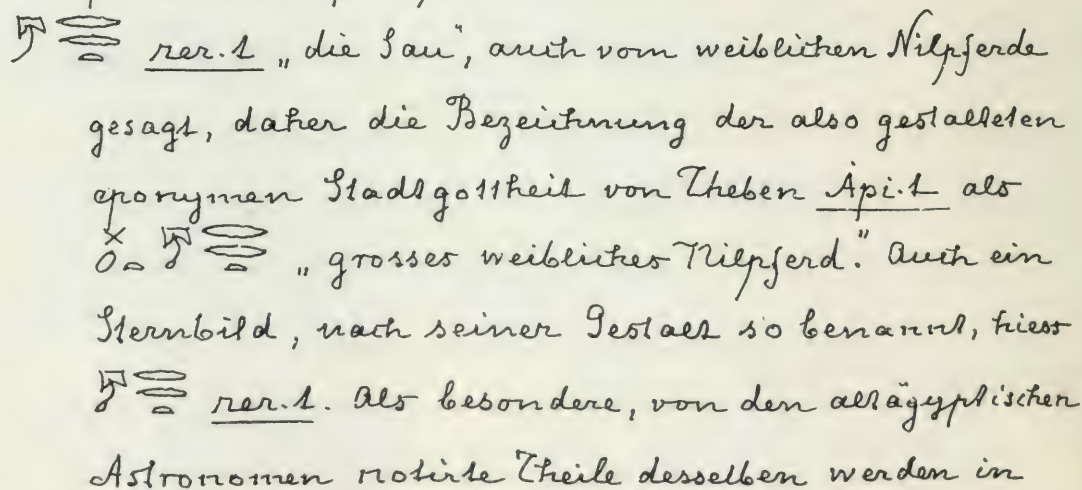 𓂋𓂋𓏏 rer.t „die Sau“, auch vom weiblichen Nilpferde
gesagt, daher die Bezeichnung der also gestalteten
eponymen Stadtgottheit von Theben Api.t als
𓂋𓂋𓏏 „grosses weibliches Nilpferd.“ Auch ein
Sternbild, nach seiner Gestalt so benannt, hiess
𓂋𓂋𓏏 rer.t. Als besondere, von den altägyptischen
Astronomen notirte Theile desselben werden in